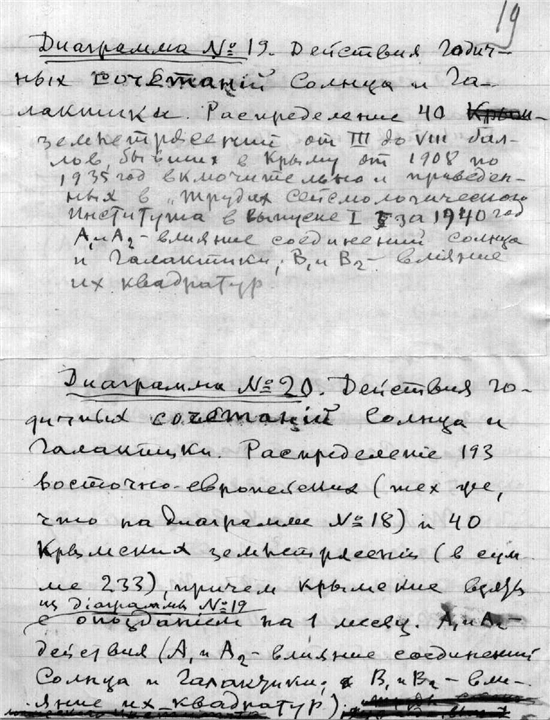 19
Диаграмма № 19. Действия годич-
ных сочетаний Солнца и Га-
лактики. Распределение 40
землетрясений от III до VIII бал-
лов, бывших в Крыму от 1908 по
1935 год включительно и приведен-
ных в „Трудах Сейсмологического
Института в выпуске I за 1940 год
A₁ и A₂ - влияние соединений Солнца
и Галактики, B₁ и B₂ - влияние
их квадратур
Диаграмма № 20. Действия го-
дичных сочетаний Солнца и
Галактики. Распределение 193
восточно-европейских (тех же,
что на диаграмме № 18) и 40
Крымских землетрясений (в сум-
ме 233), причем крымские взяты
из диаграммы № 19
с опозданием на 1 месяц. A₁ и A₂ -
действия (A₁ и A₂ - влияние соединений
Солнца и Галактики; B₁ и B₂ - вли-
яние их квадратур).